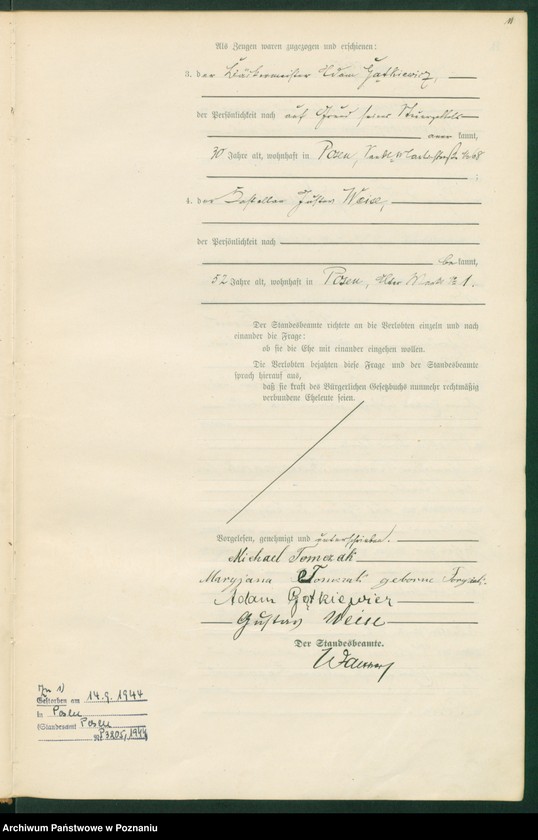 11
Als Zeugen waren zugezogen und erschienen:
3. der Bäckermeister Adam
der Persönlichkeit nach auf Grund seines
kannt,
30 Jahre alt, wohnhaft in Posen,
;
4. der Kastellan Gustav Weise,
der Persönlichkeit nach
be kannt,
52 Jahre alt, wohnhaft in Posen, Alter Markt № 1.
Der Standesbeamte richtete an die Verlobten einzeln und nach
einander die Frage:
ob sie die Ehe mit einander eingehen wollen.
Die Verlobten bejahten diese Frage und der Standesbeamte
sprach hierauf aus,
daß sie kraft des Bürgerlichen Gesetzbuchs nunmehr rechtmäßig
verbundene Eheleute seien.
Vorgelesen, genehmigt und unterschrieben.
Michael Tomczak
Maryjana Tomczak geborne
Adam
Gustav Weise
Der Standesbeamte.
Zu 1)
Gestorben am 14.9.1944
in Posen
(Standesamt Posen
№ 3205/1944
Archiwum Państwowe w Poznaniu